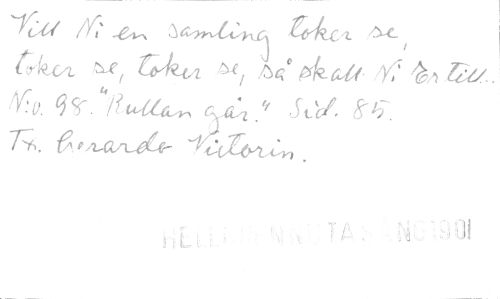 Vill Ni en samling toker se,
toker se, toker se, så skall Ni Er till..
N:o. 98. "Rullan går." Sid. 85.
Tx. Gerardo Victorin.